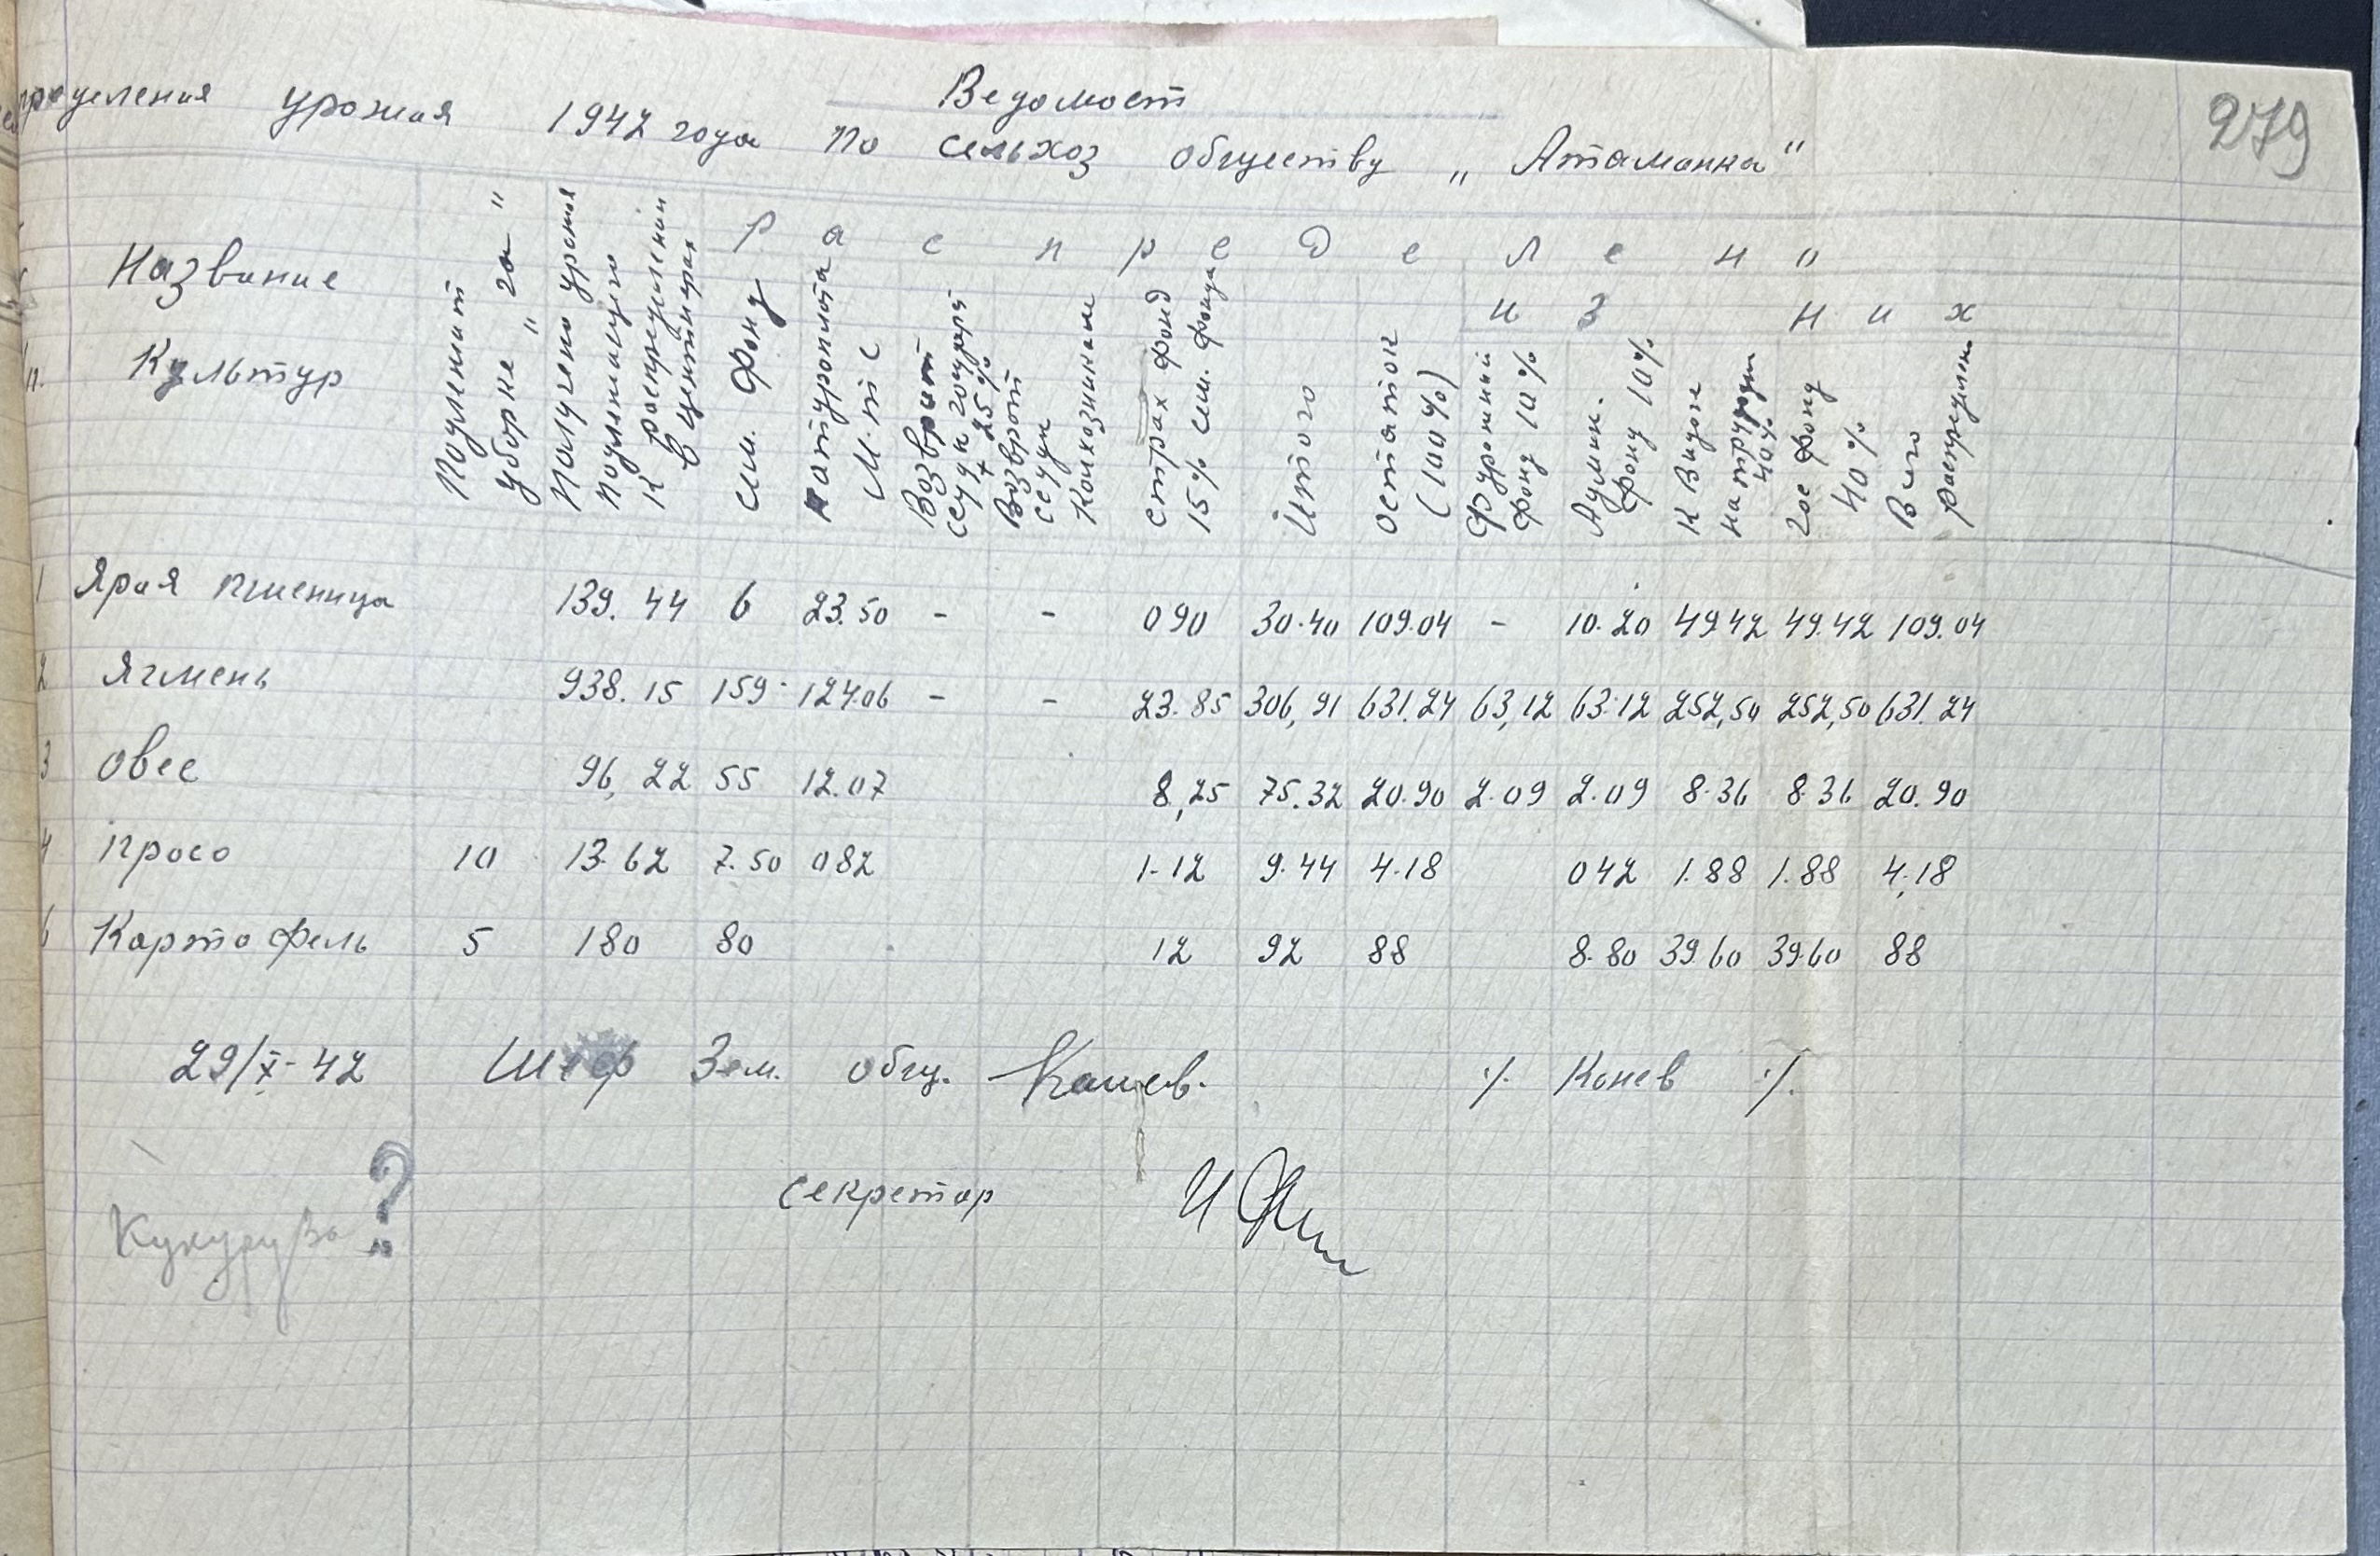 Ведомост
279
пределения урожая 1942 года по сельхоз обществу „Атаманка"
Название
Культур
Подлежит
уборке "га"
Получено урожая
подлежащего
к распределении
в центнерах
Распределено
сем. фонд
натуроплота
М.т.с
Возврат
ссуды государ
+ 25%
Возврат
ссуды
Колхозникам
страх фонд
15% сем. фонда
Итого
Остаток
(100%)
из них
Фуражный
фонд 10%
Админ.
фонд 10%
К Видаче
на трудодни
40%
гос фонд
40%
Всего
распределено
1 Ярая пшеница 139.44 6 23.50 - - 090 30.40 109.04 - 10.20 4942 49.42 109.04
2 Ячмень 938.15 159- 124.06 - - 23.85 306,91 631.24 63,12 63.12 252,50 252,50 631.24
3 Овес 96,22 55 12.07 8,25 75.32 20.90 2.09 2.09 8.36 8.36 20.90
4 просо 10 13.62 7.50 082 1.12 9.44 4.18 042 1.88 1.88 4,18
6 Картофель 5 180 80 12 92 88 8.80 39.60 39.60 88
29/X-42 Шеф Зем. общ. Конев. ٪ Конев ٪.
секретар
Кукуруза ?